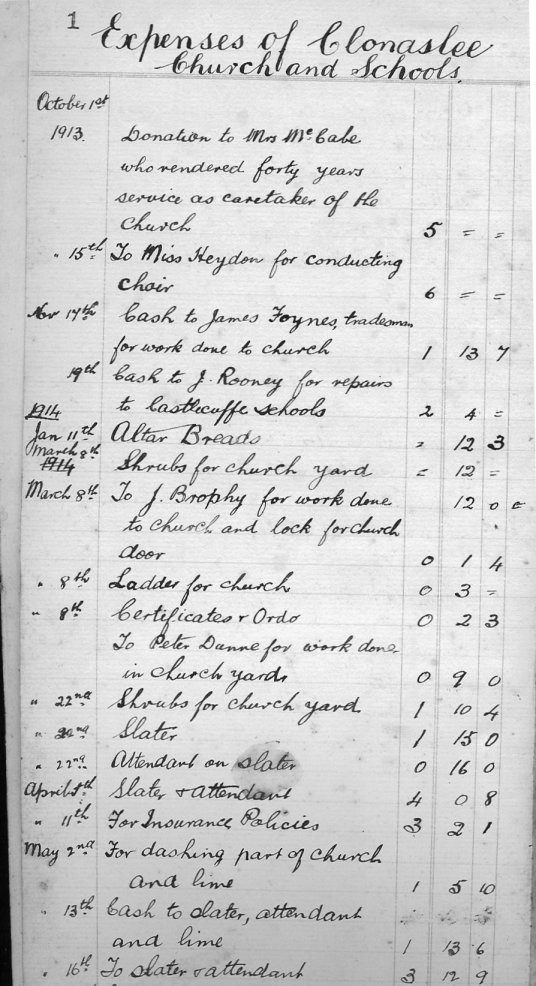 1
Expenses of Clonaslee
Church and Schools.
October 1st
1913. Donation to Mrs McCabe
who rendered forty years
service as caretaker of the
church 5 = =
" 15th To Miss Heydon for conducting
choir 6 = =
Nov 17th Cash to James Foynes, tradesman
for work done to church 1 13 7
19th Cash to J. Rooney for repairs
1914 to Castlecuffe schools 2 4 =
Jan 11th Altar Breads = 12 3
March 8th
1914 Shrubs for church yard = 12 =
March 8th To J. Brophy for work done 12 0
to church and lock for church
door 0 1 4
" 8th Ladder for church 0 3 =
" 8th Certificates & Ordo 0 2 3
To Peter Dunne for work done
in church yards 0 9 0
" 22nd Shrubs for church yard 1 10 4
" 22nd Slater 1 15 0
" 22nd Attendant on slater 0 16 0
April Slater & attendant 4 0 8
" 11th For Insurance Policies 3 2 1
May 2nd For dashing part of church
and lime 1 5 10
" 13th Cash to slater, attendant
and lime 1 13 6
" 16th To slater & attendant 3 12 9